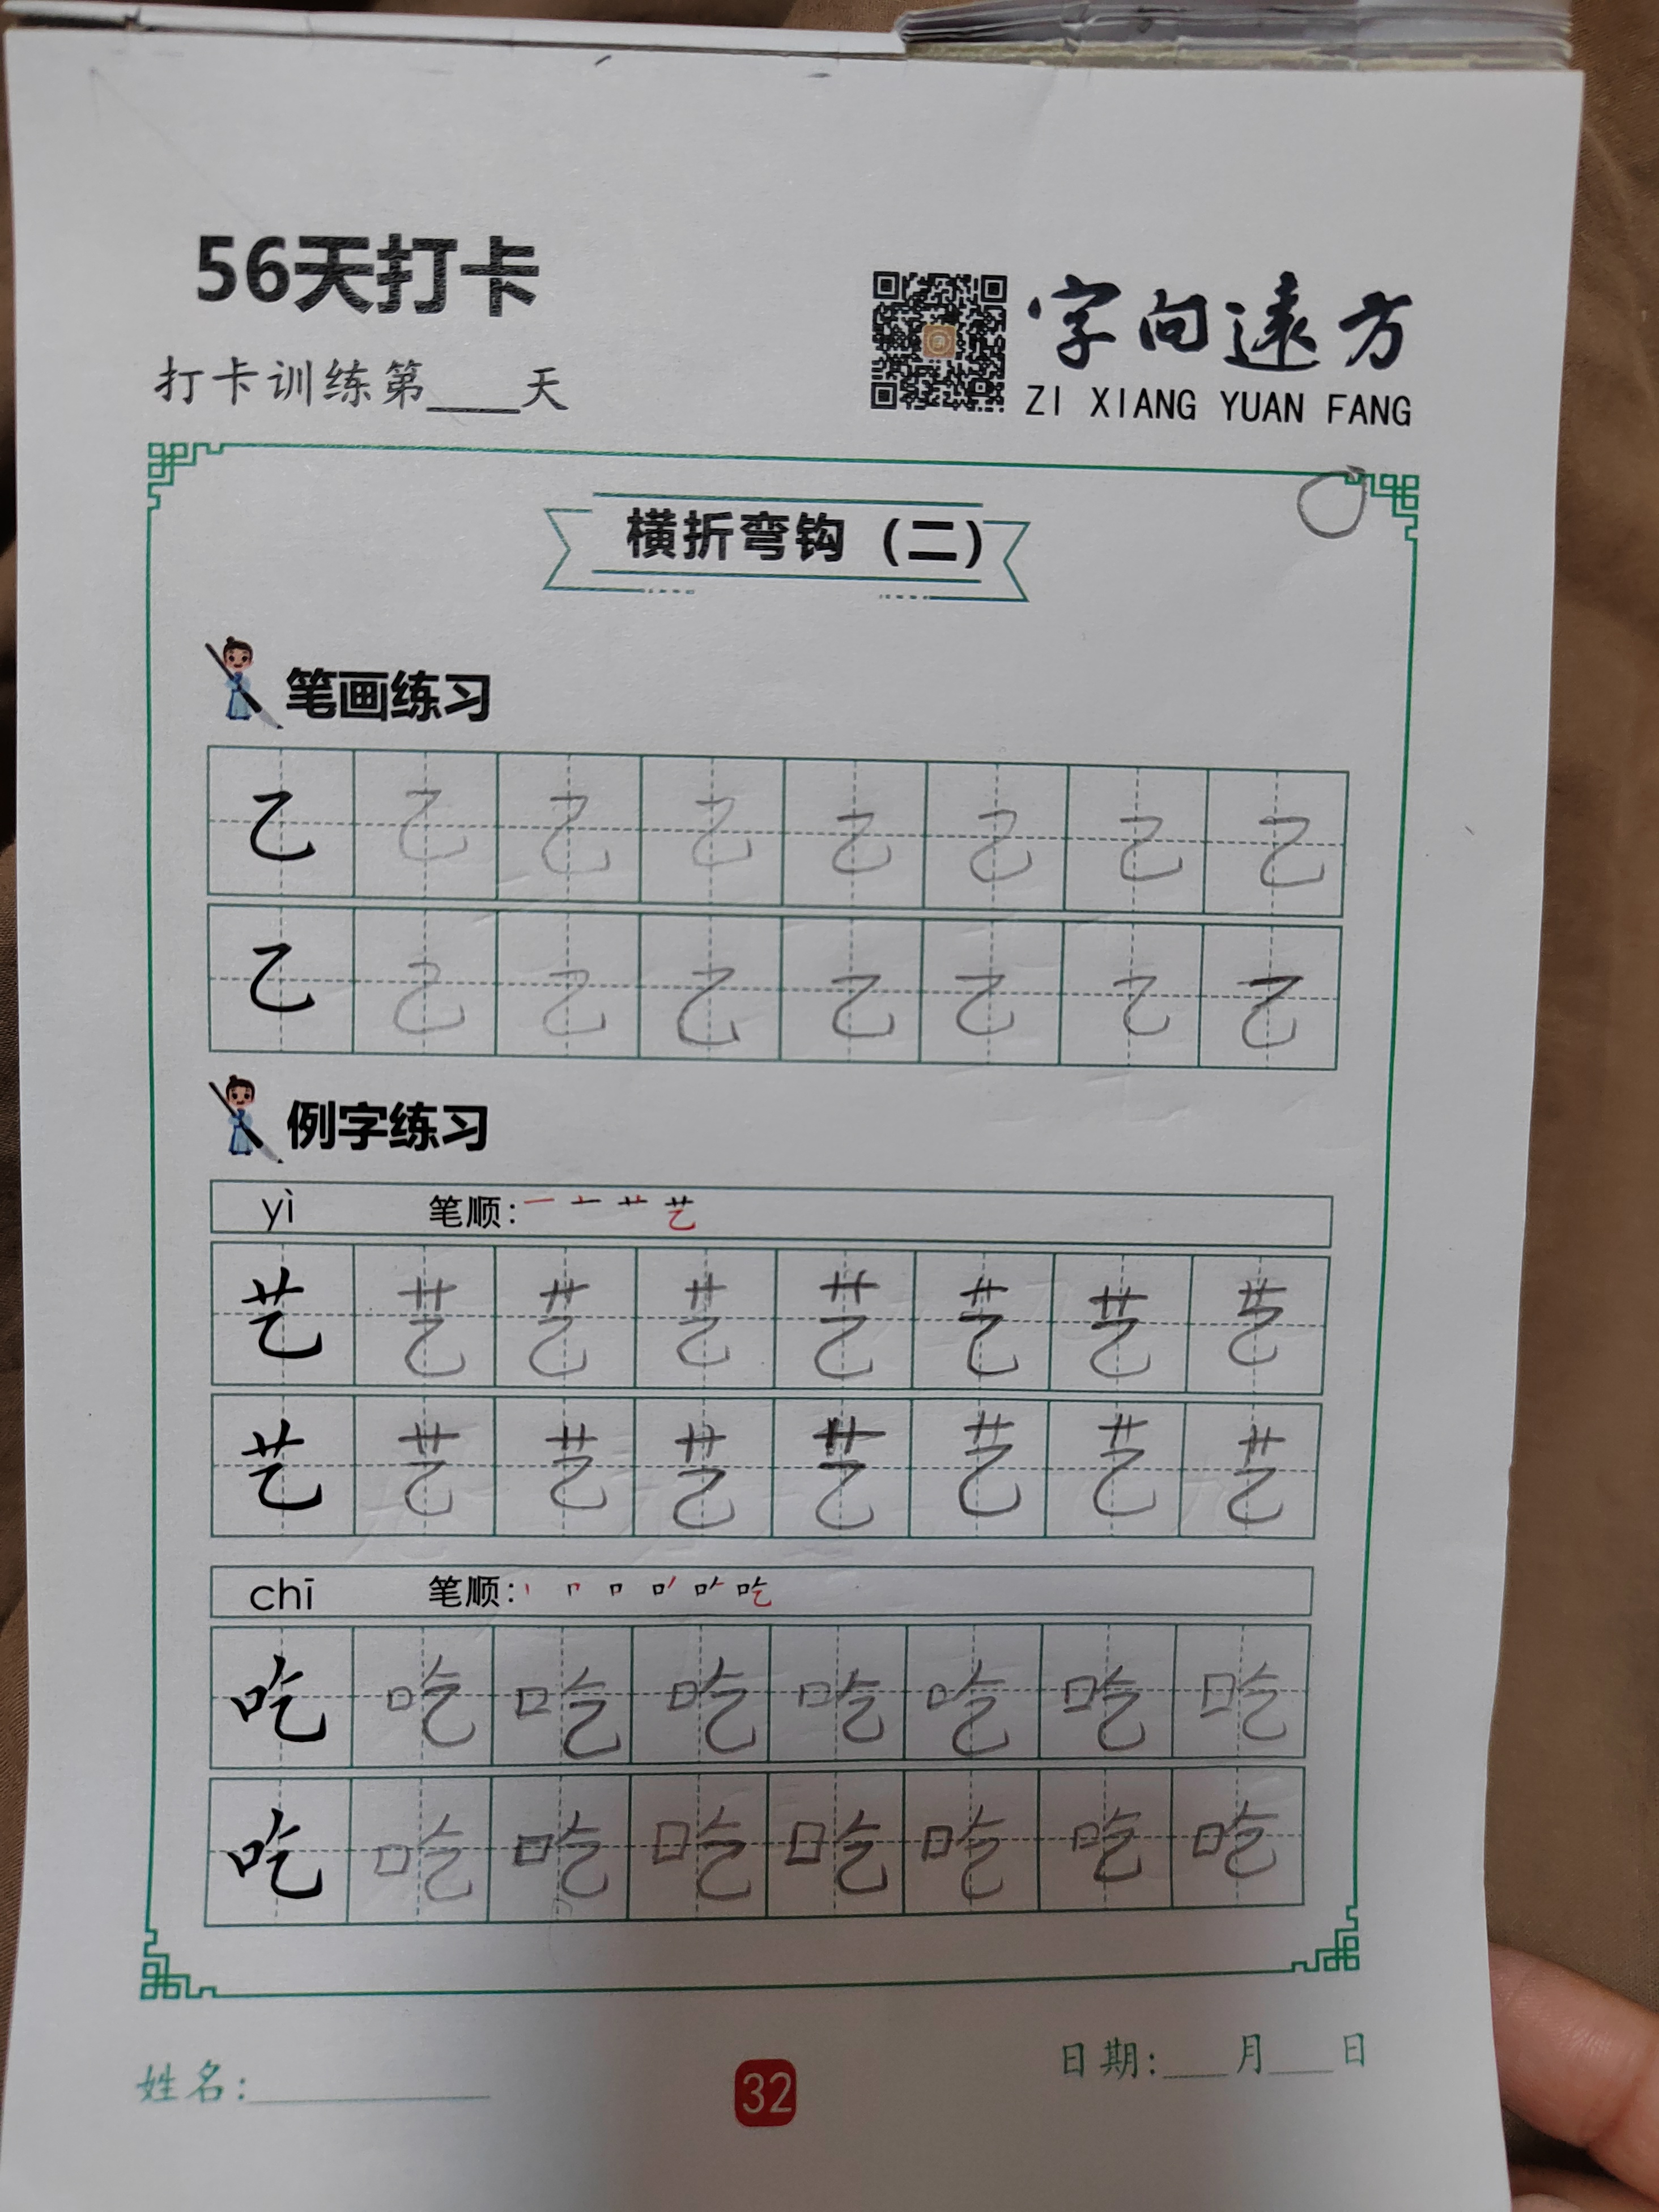 56天打卡
打卡训练第____天
字向遠方
ZI XIANG YUAN FANG
横折弯钩（二）
笔画练习
乙 乙 乙 乙 乙 乙 乙 乙
乙 乙 乙 乙 乙 乙 乙 乙
例字练习
yì 笔顺: 一 艹 艺
艺 艺 艺 艺 艺 艺 艺 艺
艺 艺 艺 艺 艺 艺 艺 艺
chī 笔顺: 丨 口 吃
吃 吃 吃 吃 吃 吃 吃 吃
吃 吃 吃 吃 吃 吃 吃 吃
姓名:________
32
日期:___月___日